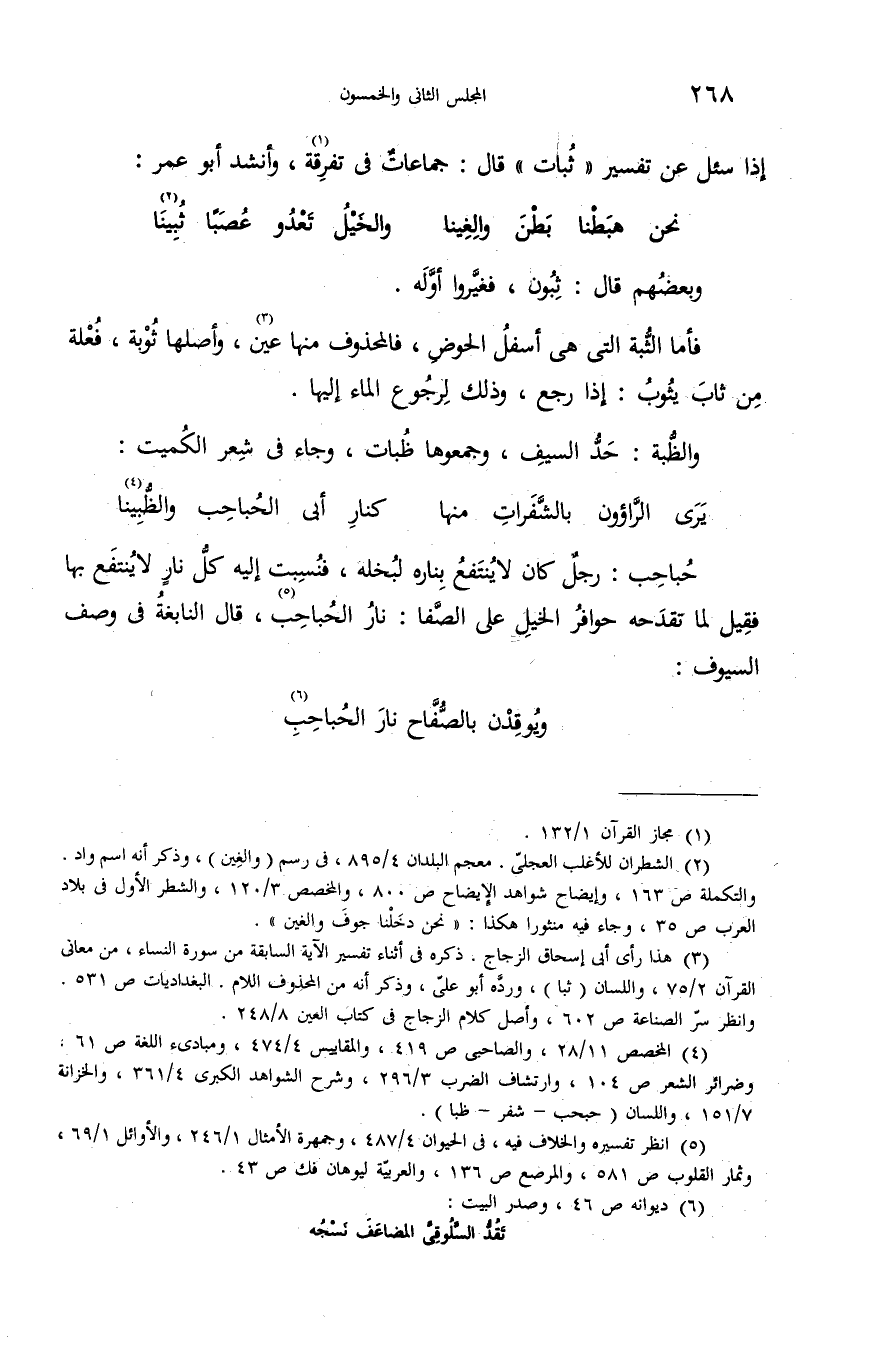 ٢٦٨ المجلس الثانى والخمسون
إذا سئل عن تفسير « ثُبات » قال : جماعاتٌ فى تفرِقة(١) ، وأنشد أبو عمر :
نحن هبَطْنا بَطْنَ والِغِينا والخَيْلُ تَعْدُو عُصَبًا ثُبِينَا(٢)
وبعضُهم قال : ثِبُون ، فغيَّروا أوَّلَه .
فأما الثُّبة التى هى أسفلُ الحوضِ ، فالمحذوف منها عين(٣) ، وأصلها ثُوْبة ، فُعْلة
مِن ثابَ يثُوبُ : إذا رجع ، وذلك لِرجُوع الماء إليها .
والظُّبة : حَدُّ السيفِ ، وجمعوها ظُبات ، وجاء فى شِعر الكُميت :
يَرَى الرَّاؤون بالشَّفَراتِ منها كنارِ أبى الحُباحِب والظُّبِينا(٤)
حُباحِب : رجلٌ كان لايُنتَفعُ بِناره لبُخله ، فنُسِبت إليه كلُّ نارٍ لايُنتفَع بها
فقِيل لما تقدَحه حوافرُ الخيلِ على الصَّفا : نارُ الحُباحِب(٥) ، قال النابغةُ فى وصف
السيوف :
ويُوقِدْن بالصُّفَّاح نارَ الحُباحِبِ(٦)
(١) مجاز القرآن ١٣٢/١ .
(٢) الشطران للأغلب العجلىّ . معجم البلدان ٨٩٥/٤ ، فى رسم ( والغِين ) ، وذكر أنه اسم واد .
والتكملة ص ١٦٣ ، وإيضاح شواهد الإيضاح ص ٨٠٠ ، والمخصص ١٢٠/٣ ، والشطر الأول فى بلاد
العرب ص ٣٥ ، وجاء فيه منثورا هكذا : « نحن دخَلْنا جوفَ والغين » .
(٣) هذا رأى أبى إسحاق الزجاج . ذكره فى أثناء تفسير الآية السابقة من سورة النساء ، من معانى
القرآن ٧٥/٢ ، واللسان ( ثبا ) ، وردَّه أبو علىّ ، وذكر أنه من المحذوف اللام . البغداديات ص ٥٣١ .
وانظر سرّ الصناعة ص ٦٠٢ ، وأصل كلام الزجاج فى كتاب العين ٢٤٨/٨ .
(٤) المخصص ٢٨/١١ ، والصاحبى ص ٤١٩ ، والمقاييس ٤٧٤/٤ ، ومبادىء اللغة ص ٦١ ،
وضرائر الشعر ص ١٠٤ ، وارتشاف الضرب ٢٩٦/٣ ، وشرح الشواهد الكبرى ٣٦١/٤ ، والخزانة
١٥١/٧ ، واللسان ( حبحب – شفر – ظبا ) .
(٥) انظر تفسيره والخلاف فيه ، فى الحيوان ٤٨٧/٤ ، وجمهرة الأمثال ٢٤٦/١ ، والأوائل ٦٩/١ ،
وثمار القلوب ص ٥٨١ ، والمرصع ص ١٣٦ ، والعربيّة ليوهان فك ص ٤٣ .
(٦) ديوانه ص ٤٦ ، وصدر البيت :
تَقُدُّ السَّلُوقِىَّ المضاعَفَ نَسْجُه